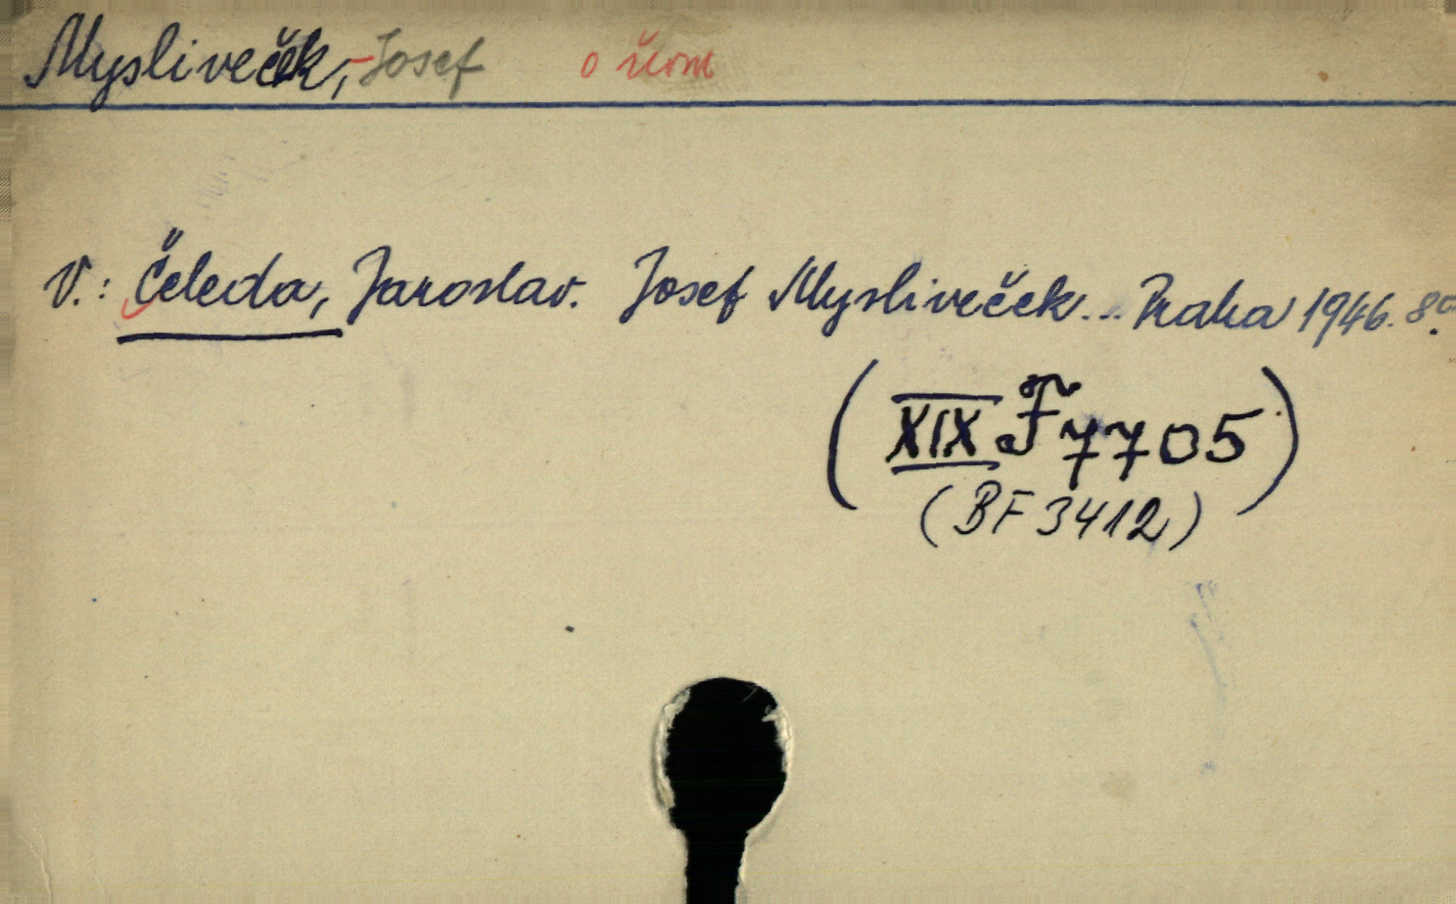 Mysliveček, Josef o něm
V.: Čeleda, Jaroslav. Josef Mysliveček... Praha 1946. 8°.
(XIX F 7705)
(BF 3412)